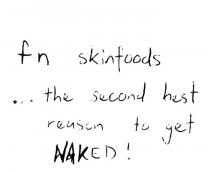 fn skinfoods
... the second best
reason to get
NAKED!